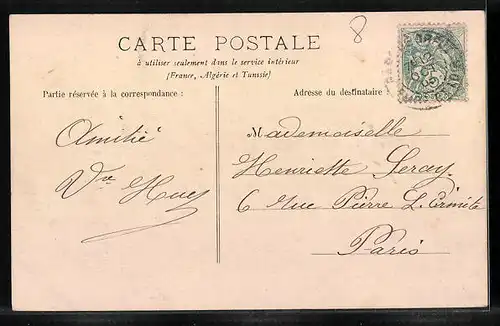 8
CARTE POSTALE
à utiliser seulement dans le service intérieur
(France, Algérie et Tunisie)
Partie réservée à la correspondance :
Adresse du destinataire :
Amitié
Vve Huey
Mademoiselle
Henriette Seray
6 Rue Pierre L'Ermite
Paris